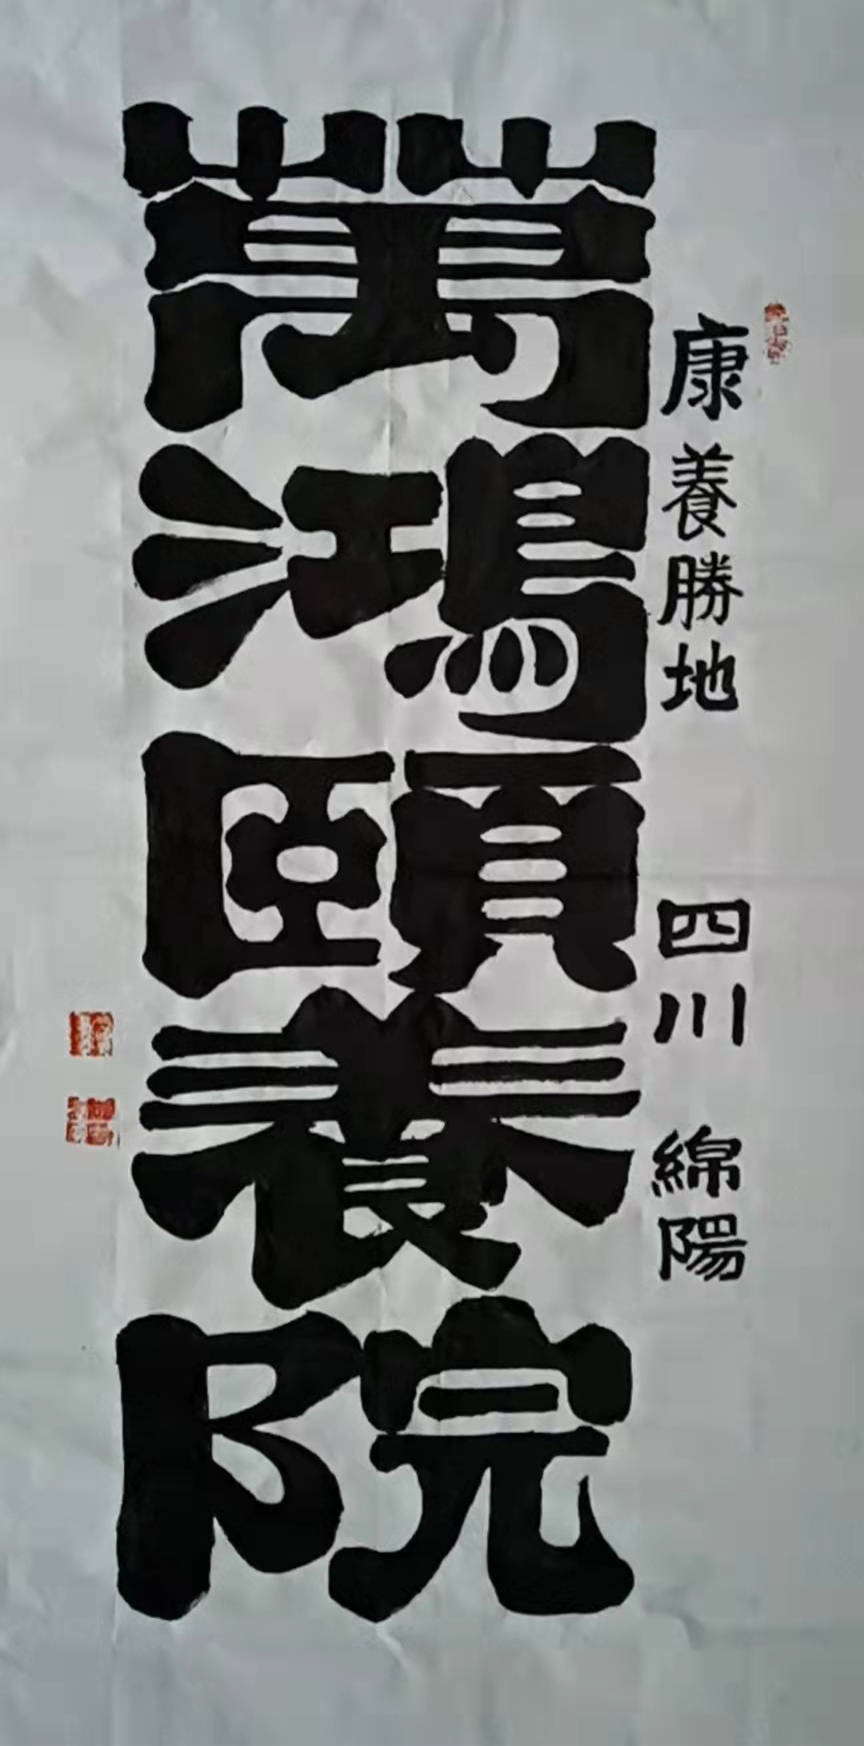 康養勝地 四川 綿陽
萬鴻頤養院